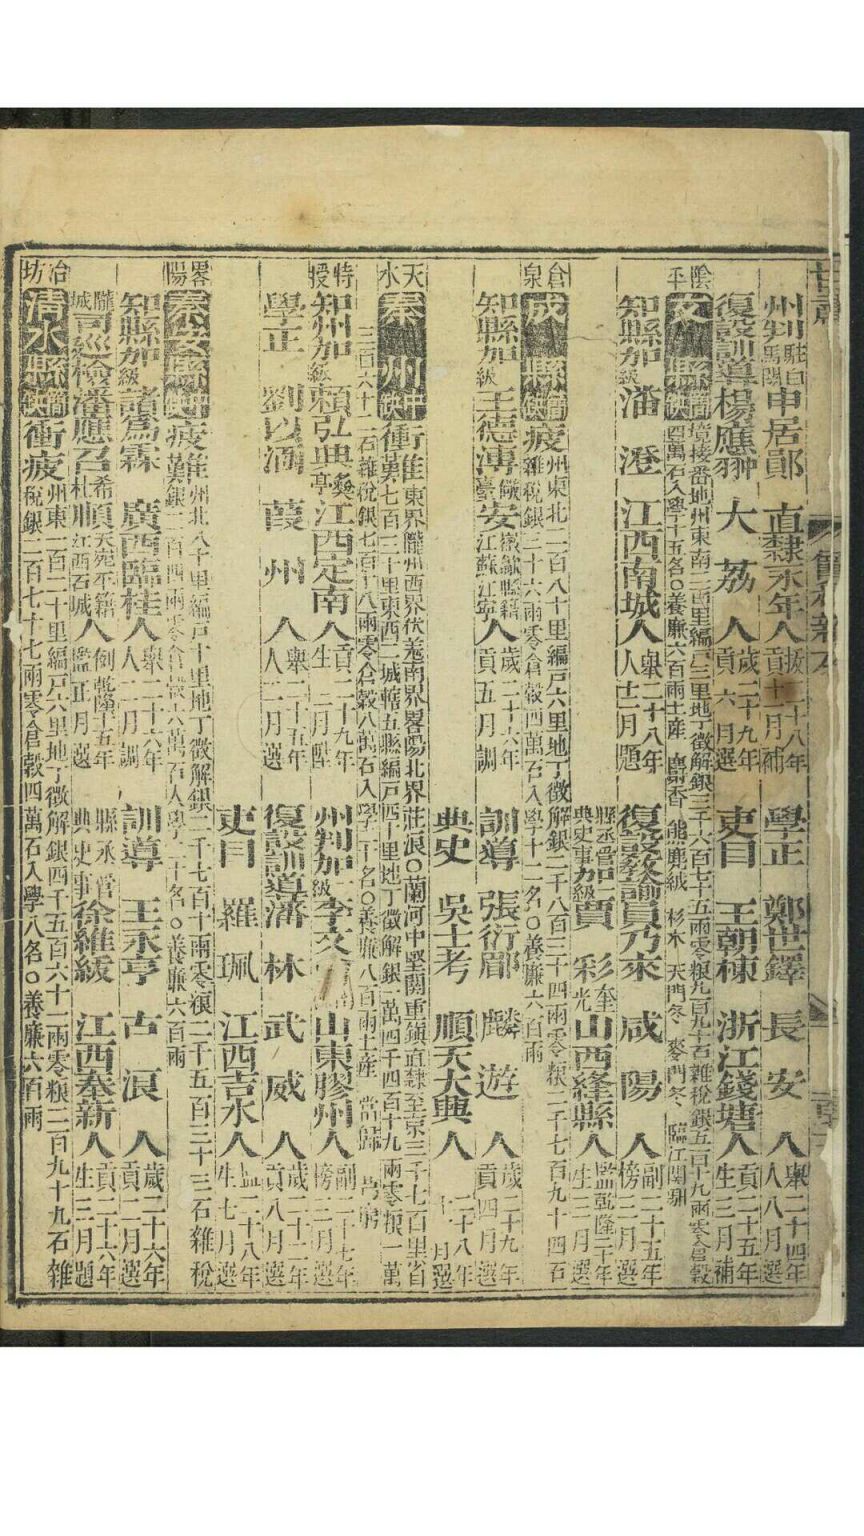 州判駐白馬關申居鄖 直隸永年人拔貢 二十八年十二月補 學正 鄭世鐸 長安人舉人二十四年八月選
復設訓導楊應翀 大荔人歲貢二十九年六月選 吏目 王朝棟 浙江錢塘人貢生二十五年三月補
陰平
文縣簡缺 境接番地州東南二百里編戶三里地丁徵解銀三千六百七十五兩零粮九百九十石雜稅銀五百十九兩零倉穀
四萬石入學十五名○養廉六百兩土產 麝香 熊 鹿絨 杉木 天門冬 麥門冬 臨江關
知縣加一級潘澄 江西南城人舉人二十八年十二月題 復設教諭員乃來 咸陽人副榜二十五年三月選
縣丞管典史事加一級賈彩奎光 山西絳縣人監生乾隆二十年三月選
倉泉
成縣簡缺疲 州東北二百八十里編戶六里地丁徵解銀二千八百三十四兩零粮二千七百九十四石
雜稅銀三十六兩零倉穀四萬石入學十二名○養廉六百兩
知縣加一級王德溥 安徽 江蘇江寧人歲貢二十六年五月調 訓導 張衍郿 麟遊人歲貢二十九年四月選
典史 吳士考 順天大興人 二十八年 月選
天水
秦州中缺衝難 東界隴州西界伏羌南界畧陽北界莊浪○蘭河中堅關重鎮直隸至京三千七百里省
七百三十里東西二城轄五縣編戶四十里地丁徵解銀一萬四千四百十九兩零粮一萬
三百六十二石雜稅銀七百十八兩零倉穀八萬石入學二十名○養廉八百兩土產 當歸
特授
知州加一級賴弘典奐亭 江西定南人貢生二十九年二月陞 州判加一級李文 山東膠州人副榜二十七年二月選
學正 劉以涵 葭州人舉人二十五年二月選 復設訓導潘林 武威人歲貢二十二年八月選
吏目 羅珮 江西吉水人監生二十八年七月選
畧陽
秦安縣中缺疲難 州北八十里編戶十里地丁徵解銀二千七百十兩零粮二千五百三十三石雜稅
銀一百四兩零倉穀六萬石入學二十名○養廉六百兩
知縣加一級諸為霖 廣西臨桂人舉人二十六年二月調 訓導 王永亨 古浪人歲貢二十六年二月選
隴城司巡檢潘應召希杜 順天宛平籍江西石城人例監乾隆十五年正月選 縣丞管典史事徐維紱 江西奉新人貢生二十六年三月題
冶坊
清水縣簡缺衝疲 州東一百二十里編戶六里地丁徵解銀四千五百六十一兩零粮二百九十九石雜
稅銀一百七十七兩零倉穀四萬石入學八名○養廉六百兩